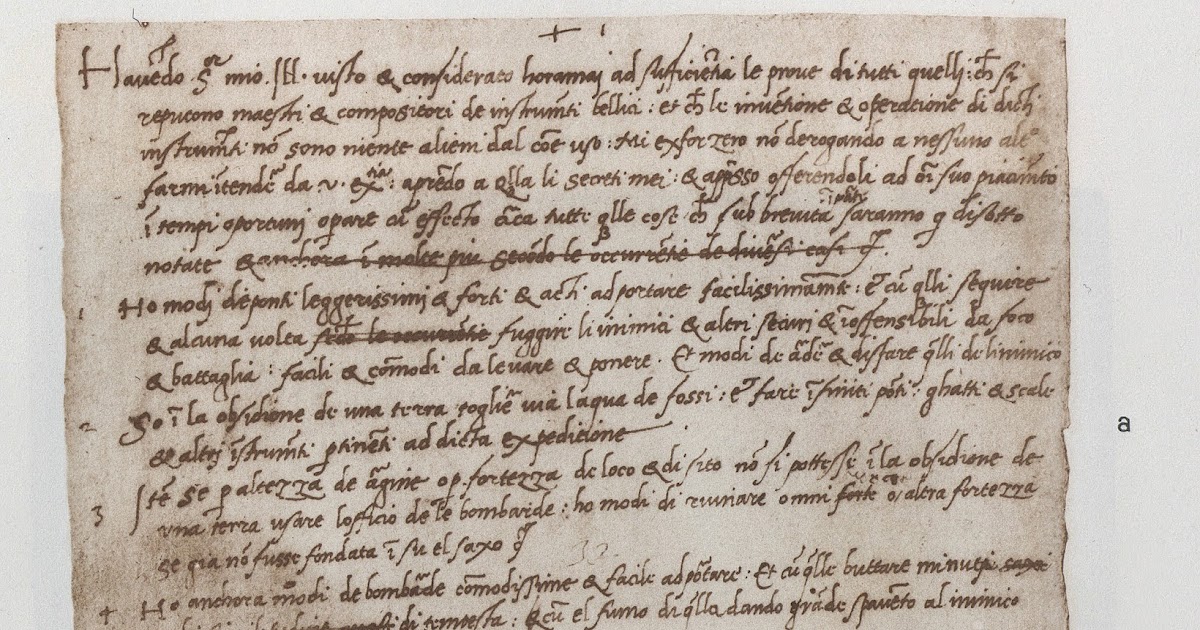 + 1
Havẽdo S.or mio Ill. visto & considerato horamai ad sufficiẽtia le prove di tutti quelli: ch̃ si
reputono maestri & compositori de instrumẽti bellici: et ch̃ le inventione & operatione di dicti
instrumẽti nõ sono niente alieni dal cõe uso: Mi exforzerò nõ derogando a nessuno altr
farmi ĩtendẽ da v. ex.tia: aprẽdo a q̃lla li secreti mei: & ap̃sso offerendoli ad oĩ suo piacimẽto
ĩ tempi oportuni opare cũ effecto c̃ca tutte q̃lle cose ch̃ sub brevità ĩ p̃te saranno q̃ disotto
notate & anchora ĩ molte più secõdo le occurrẽtie de divẽsi casi
1 Ho modi de ponti leggerissimi & forti & acti ad portare facilissimamẽte: & cũ q̃lli seguire
& alcuna volta secõdo le occurrẽtie fuggire li inimici & altri securi & ĩoffensibili da foco
& battaglia: facili & cõmodi da levare & ponere. Et modi de ardẽ & disfare q̃lli de linimico
2 So ĩ la obsidione de una terra togliẽ via laqua de fossi: & fare ĩfiniti põti ghatti & scale
& altri ĩstrumẽti ptinẽti ad dicta expeditione
3 Itẽ se p altezza de argine o p fortezza de loco & di sito nõ si pottesse ĩ la obsidione de
una terra usare lofficio de le bombarde: ho modi di ruinare omni forte o altra fortezza
se già nõ fusse fondata ĩ su el saxo
32
4 Ho anchora modi de bombarde cõmodissime & facile ad portare: Et cũ q̃lle buttare minuti saxi
di tempesta: & cũ el fumo di q̃lla dando grãde spavento al inimico
a